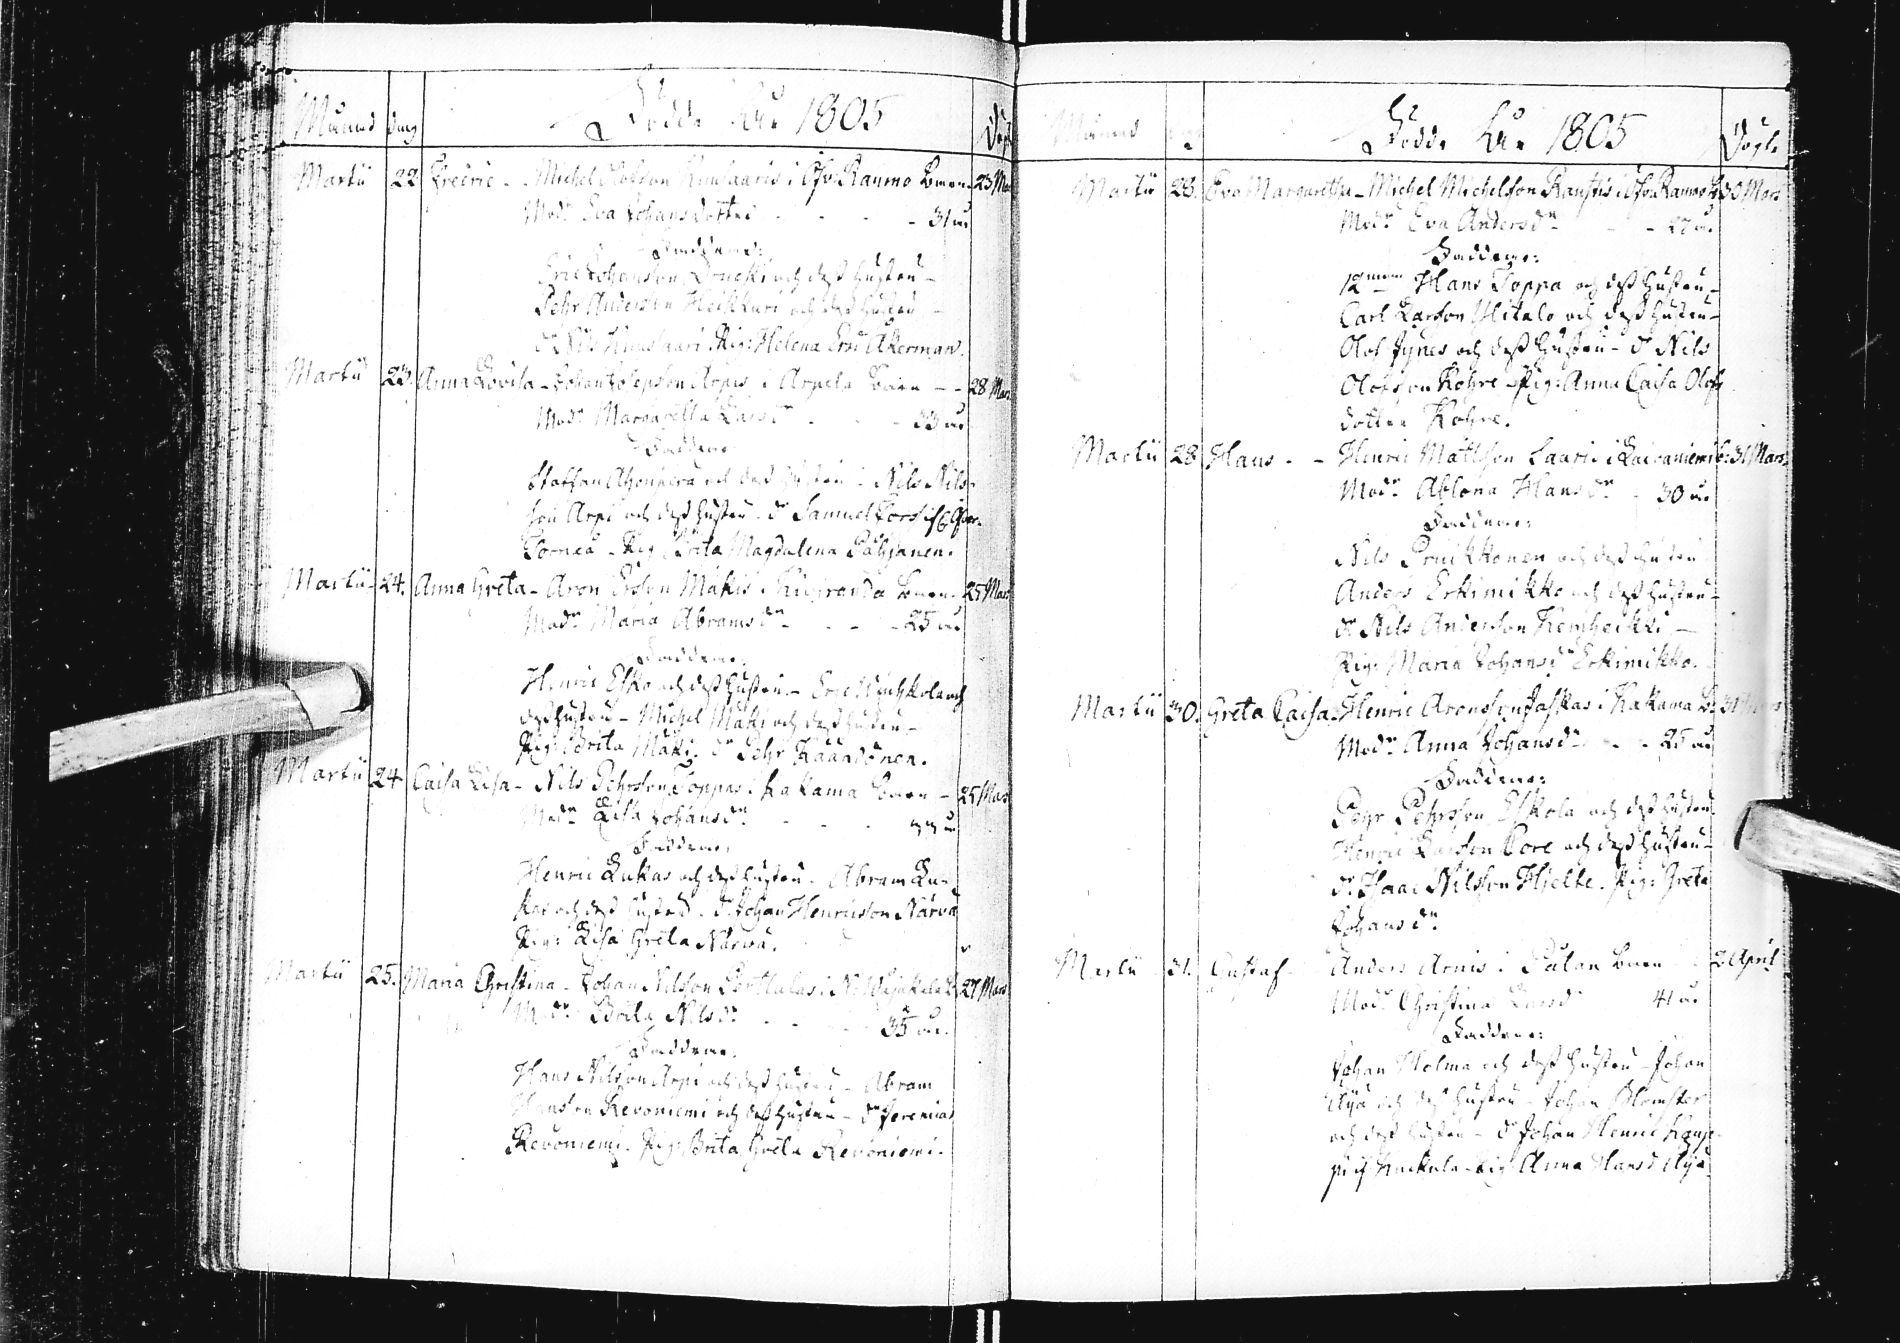 Månad dag Födde År 1805 Döpt
Martii 22 Fredric - Michel Olofson Kuusaaris i Öfv. Raumo Barn 23 Mar
Modr Eva Johansdotter - - - 31 år
Faddrar:
Eric Johansson Drucki och dess hustru -
Pehr Anderson Heikkuri och dess hustru -
dr Nils Kuusaari. Pig: Helena Ersdr Åkerman.
Martii 23. Anna Lovisa - Johan Josepson Arpis i Arpela barn - - 28 Mar
Modr Margaretha Larsdr - - 33 år
Faddrar
Staffan Ahonpera och dess hustru - Nils Nils-
son Arpi och dess hustru. dr Samuel Fors if Öfver-
Torneå - Pig Brita Magdalena Påhjanen.
Martii 24. Anna Greta - Aron Erson Mäkis i Kiviranda barn - 25 Mar
Modr Maria Abramsdr - - - 25 år
Faddrar:
Henric Esko och dess hustru - Eric och
dess hustru - Michel Mäki och dess hustru -
Pig: Brita Mäki. dr Pehr Kaandonen.
Martii 24 Caisa Lisa - Nils Pehrsson Toppas i Kakama barn - 25 Mar
Modr Lisa Johansdr - - - år
Faddrar:
Henric Lukas och dess hustru - Abram Lu-
kas och dess hustru. dr Johan Henricson Närvä
Pig: Lisa Greta Närvä.
Martii 25. Maria Christina - Johan Nilson Perttulas i N: Wojakkala b. 27 Mars
Modr Brita Nilsdr - - - 35 år.
Faddrar:
Hans Nilsson Arpi och dess hustru - Abram
Hansson Revoniemi och dess hustru - dr Jeremias
Revoniemi. Pig: Brita Greta Revoniemi.
Månad Födde År 1805 Döpte
Martii 28. Eva Margaretha - Michel Michelson Rantis i Öfv. Raumo b. 30 Mars
Modr Eva Andersdr - - - 27 år
Faddrar:
12man Hans Toppa och dess hustru -
Carl Larson Ylitalo och dess hustru -
Olof Jynes och dess hustru - dr Nils
Olofson Rohre. Pig: Anna Caisa Olofs
dotter Rohre.
Martii 28 Hans - - Henric Mattsson Lauris i Laivaniemi b: 31 Mars
Modr Ablona Hansdr - 30 år
Faddrar:
Nils Pruikkonen och dess hustru
Anders Erkimikko och dess hustru -
dr Nils Anderson Kemheikki -
Pig: Maria Johansdr Erkimikko.
Martii 30. Greta Caisa - Henric Aronson Jaskas i Kakama b. 31 Mars
Modr Anna Johansdr - - - 25 år
Faddrar:
Pehr Pehrsson Eskola och dess hustru
Henric Larsson Pore och dess hustru -
dr Isaac Nilsson Hjelte. Pig: Greta
Johansdr.
Martii 31. Gustaf - Anders Arnis i barn - 2 April
Modr Christina Larsdr 41 år
Faddrar:
Johan Holma och dess hustru - Johan
Alja och dess hustru - Johan Blomster
och dess hustru - dr Johan Henric
if Kuckula - Pig: Anna Hansdr Alja